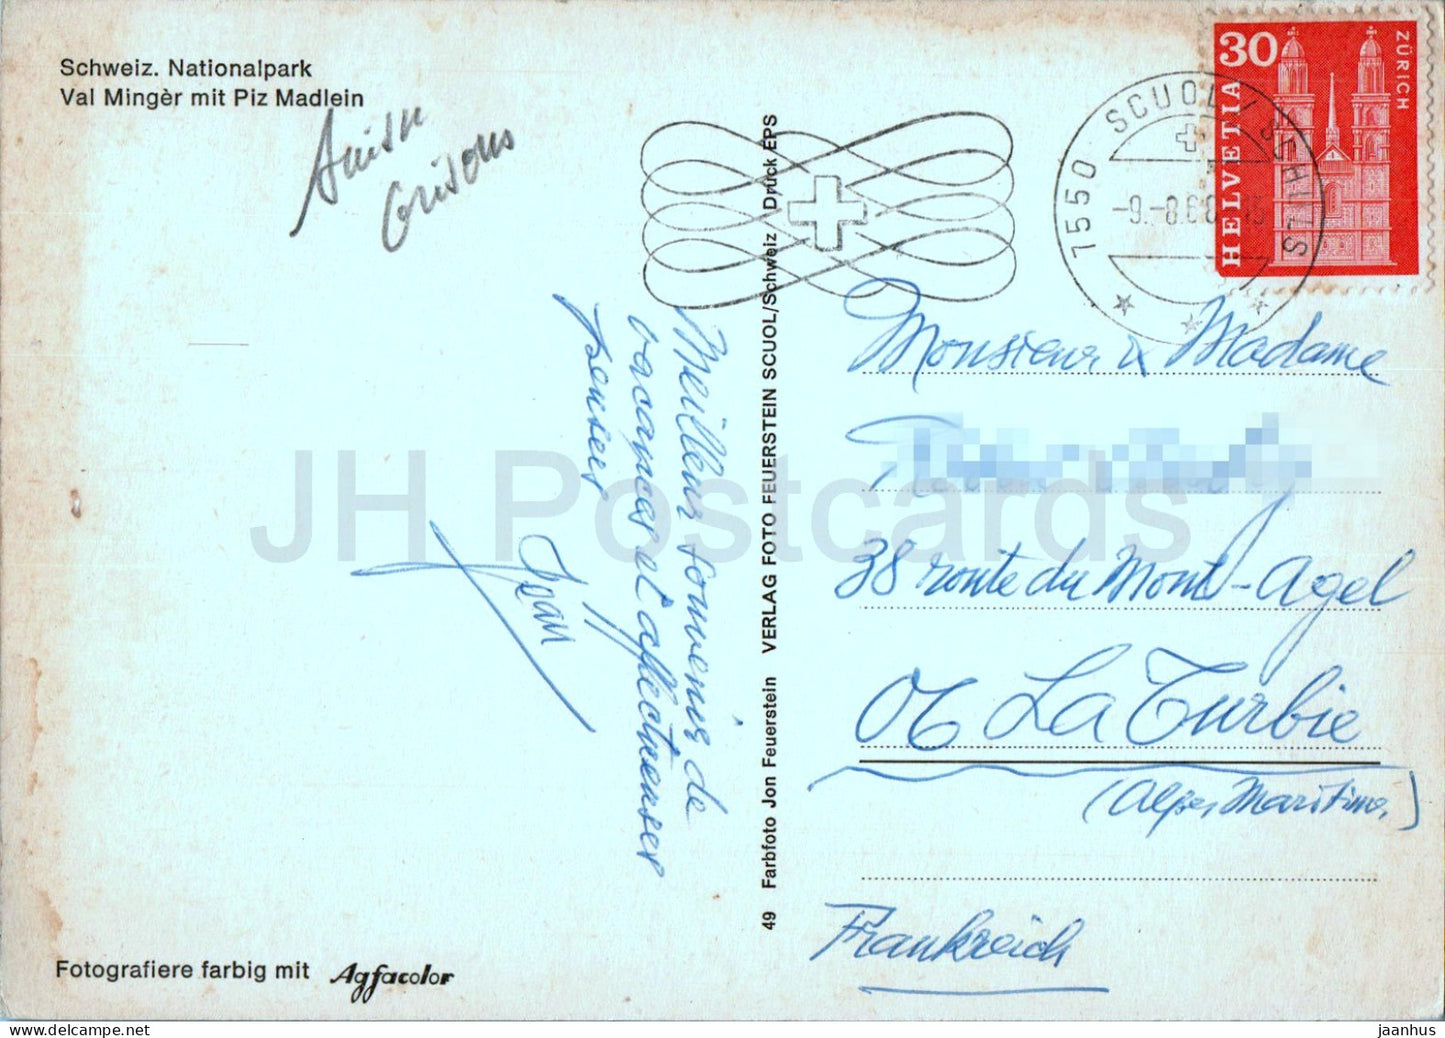 Schweiz. Nationalpark
Val Mingèr mit Piz Madlein
Suisse
Grisons
30
ZÜRICH
HELVETIA
7550 SCUOL / SCHULS
-9.-8.68
Meilleur souvenir de
vacances et affectueuses
pensées
49 Farbfoto Jon Feuerstein VERLAG FOTO FEUERSTEIN SCUOL/Schweiz Druck EPS
Monsieur & Madame
38 route du Mont-Agel
06 La Turbie
(Alpes Maritimes)
Frankreich
Fotografiere farbig mit Agfacolor
JH Postcards
jaanhus
ma-shops.com